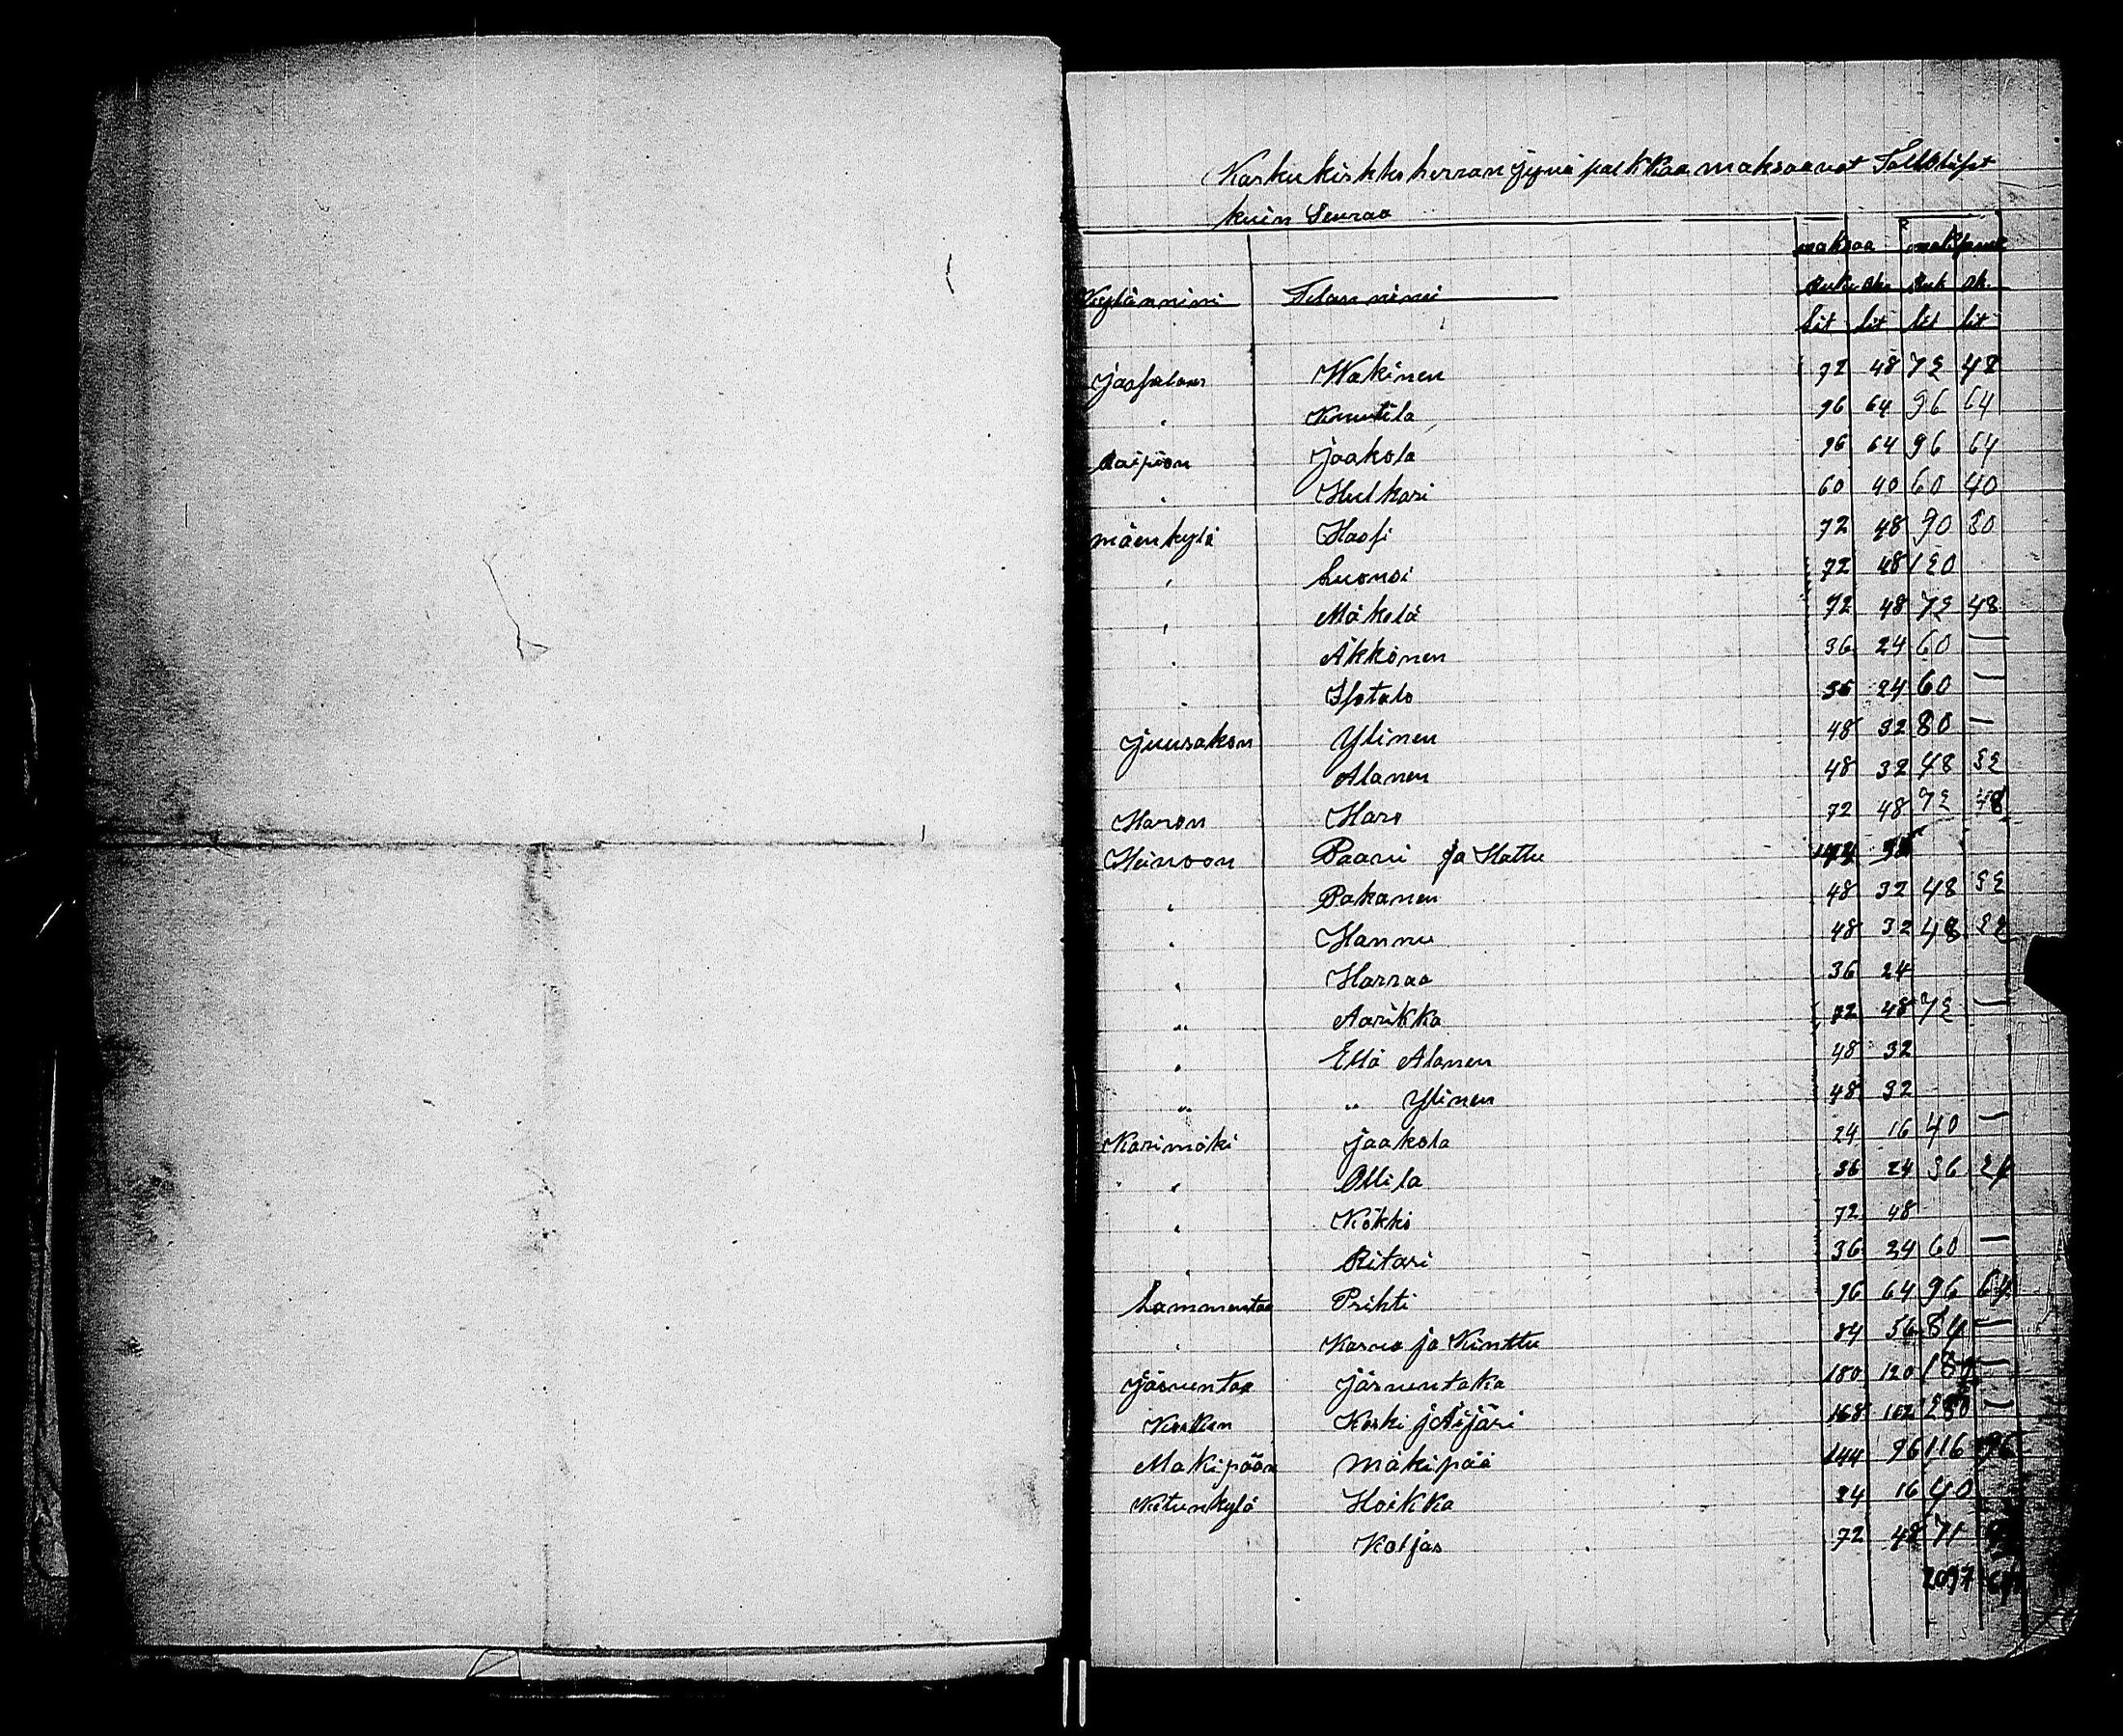 Karku kirkko herran jyvä palkkaa maksaavat Tallolliset
kuin Seuraa
maksaa maksanut
Kylännimi Tilan nimi Ruku Oh. Ruk Oh.
Lit Lit Lit Lit
Jaafalan Wakinen 72 48 72 48
" Knuutila 96 64 96 64
Aaipion Jaakola 96 64 96 64
" Hulkari 60 40 60 40
mäenkylä Haosi 72 48 90 30
" Luonsi 72 48 120
" Mäkelä 72 48 72 48
" Äkkönen 36 24 60 —
" Isotalo 36 24 60 —
Juusakon Ylinen 48 32 80 —
Alanen 48 32 48 32
Haron Haro 72 48 72 48
Heinoon Paavi ja Hattu 144 96
" Pakanen 48 32 48 32
" Hannu 48 32 48 32
" Harraa 36 24
" Aarikka 72 48 72 —
" Ellä Alanen 48 32
" " Ylinen 48 32
Karimäki Jaakola 24 16 40 —
" Ollila 36 24 36 24
" Kökkö 72 48
" Ritari 36 24 60 —
Lammentaa Prihti 96 64 96 64
" Karvo ja Kinttu 84 56 84 —
Järventaa Järventaka 180 120 180 —
Kosken Koski j Äijäri 168 112 280 —
Mäkipään mäkipää 144 96 116 96
Kutunkylä Hoikka 24 16 40
Koljas 72 48 71
2097